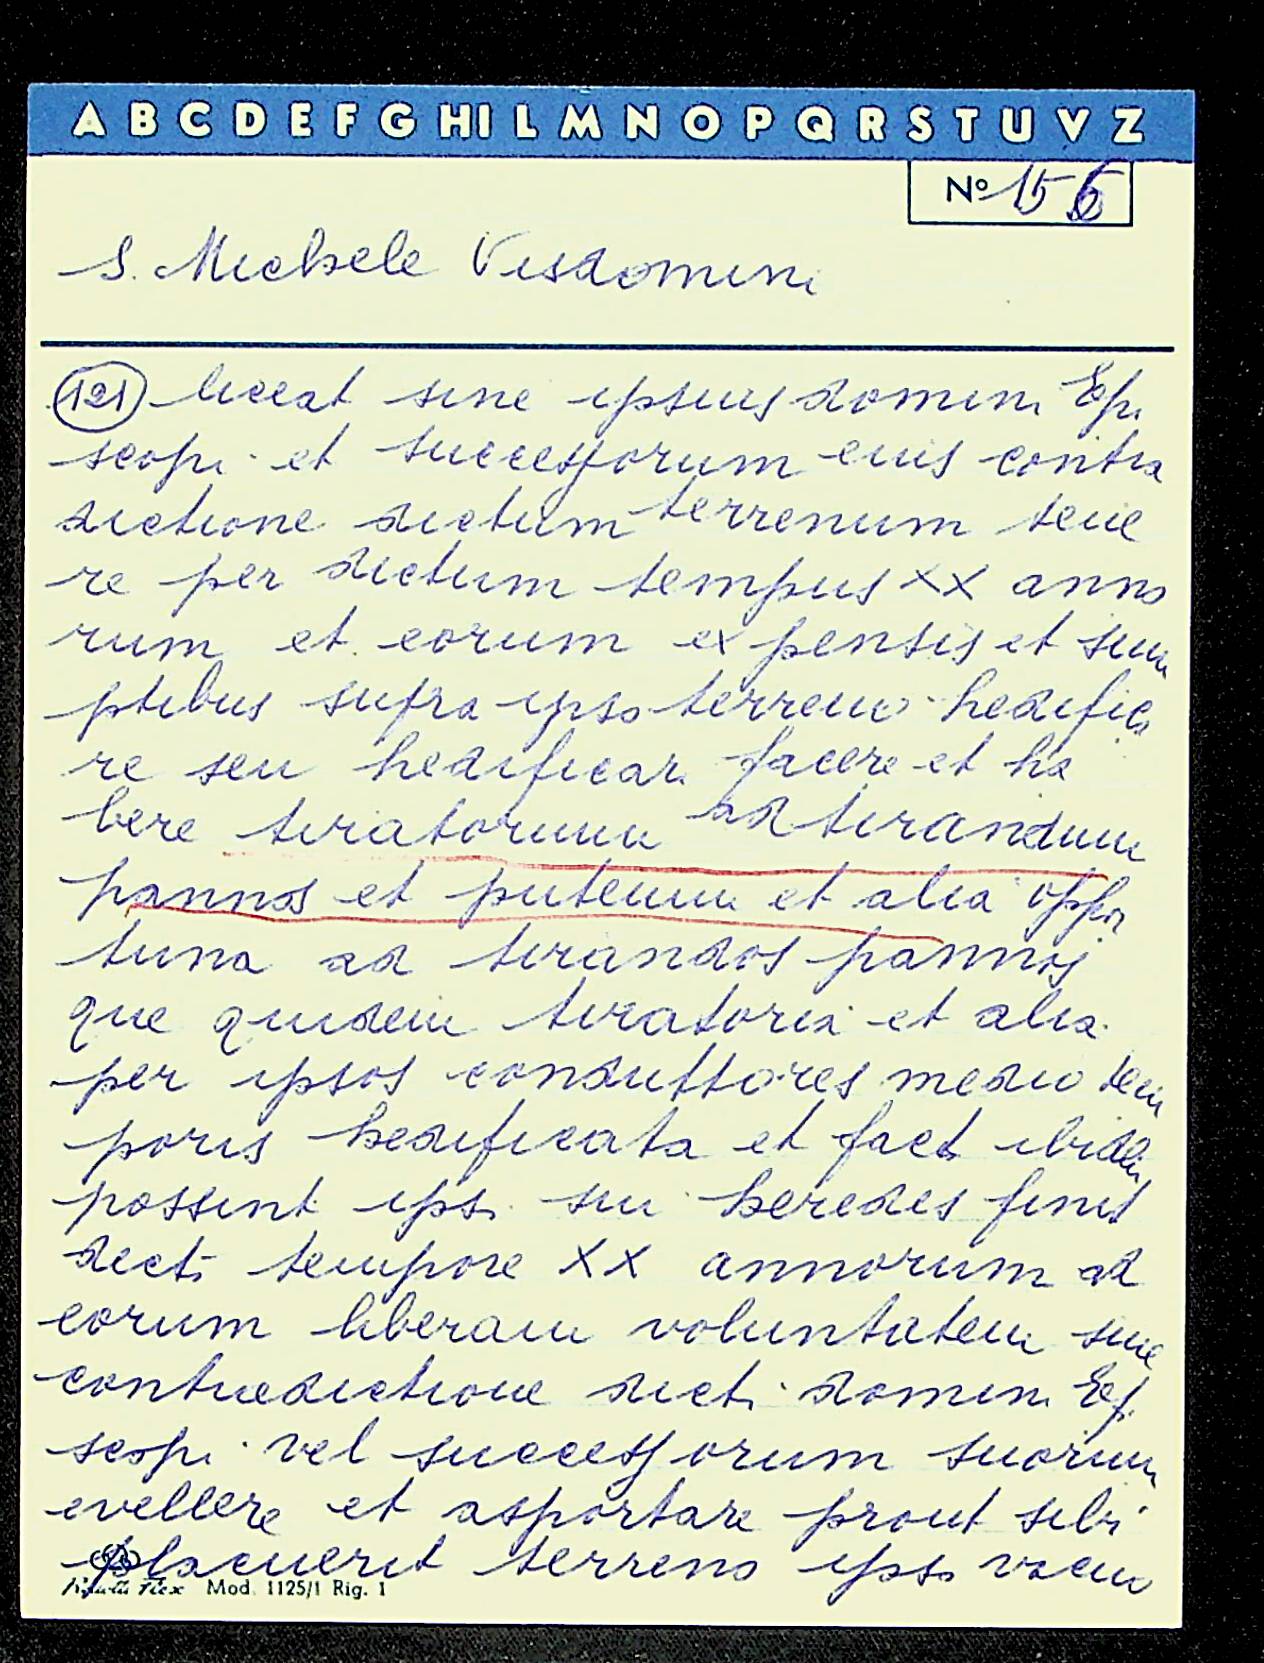 A B C D E F G H I L M N O P Q R S T U V Z
Nº 156
S. Michele Visdomini
(121) liceat sine ipsius domini Epi
scopi et successorum eius contra
dictione dictum terrenum tene
re per dictum tempus XX anno
rum et eorum expensis et sum
ptibus supra ipso terreno hedifica
re seu hedificari facere et ha
bere tiratorium ad tirandum
pannos et puteum et alia oppor
tuna ad tirandos pannos
que quidem tiratoria et alia
per ipsos conduttores medio tem
poris hedificata et fact ibidem
possint ipsi sui heredes finit
dicti tempore XX annorum ad
eorum liberam voluntatem sine
contradictione dicti domini Epi
scopi vel successorum suorum
evellere et asportare prout sibi
placuerit terreno ipso vacuo
Mod. 1125/1 Rig. 1